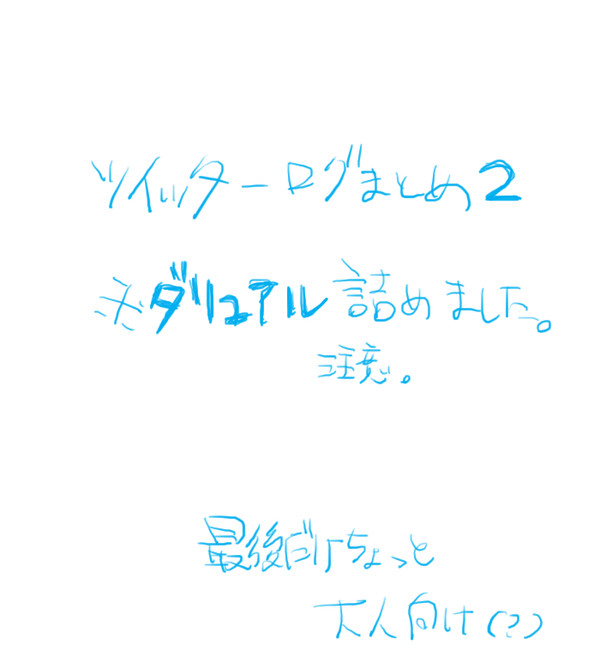 ツイッターログまとめ2
※ダリュアル詰めました。
注意。
最後だけちょっと
大人向け(?)